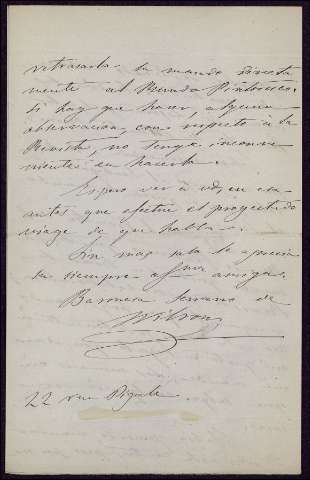 retrasarla la mando directa
mente al Mundo Pintoresco.
Si hay que hacer alguna
observacion, con respecto à la
Revista, no tenga inconve
nientes en hacerla.
Espero ver à vd, en
antes que efectue el proyectado
viage de que habla.
Sin mas sabe le aprecia
su siempre affma amiga.
Baronesa Serrano de
Wilson
22 rue Pigalle.